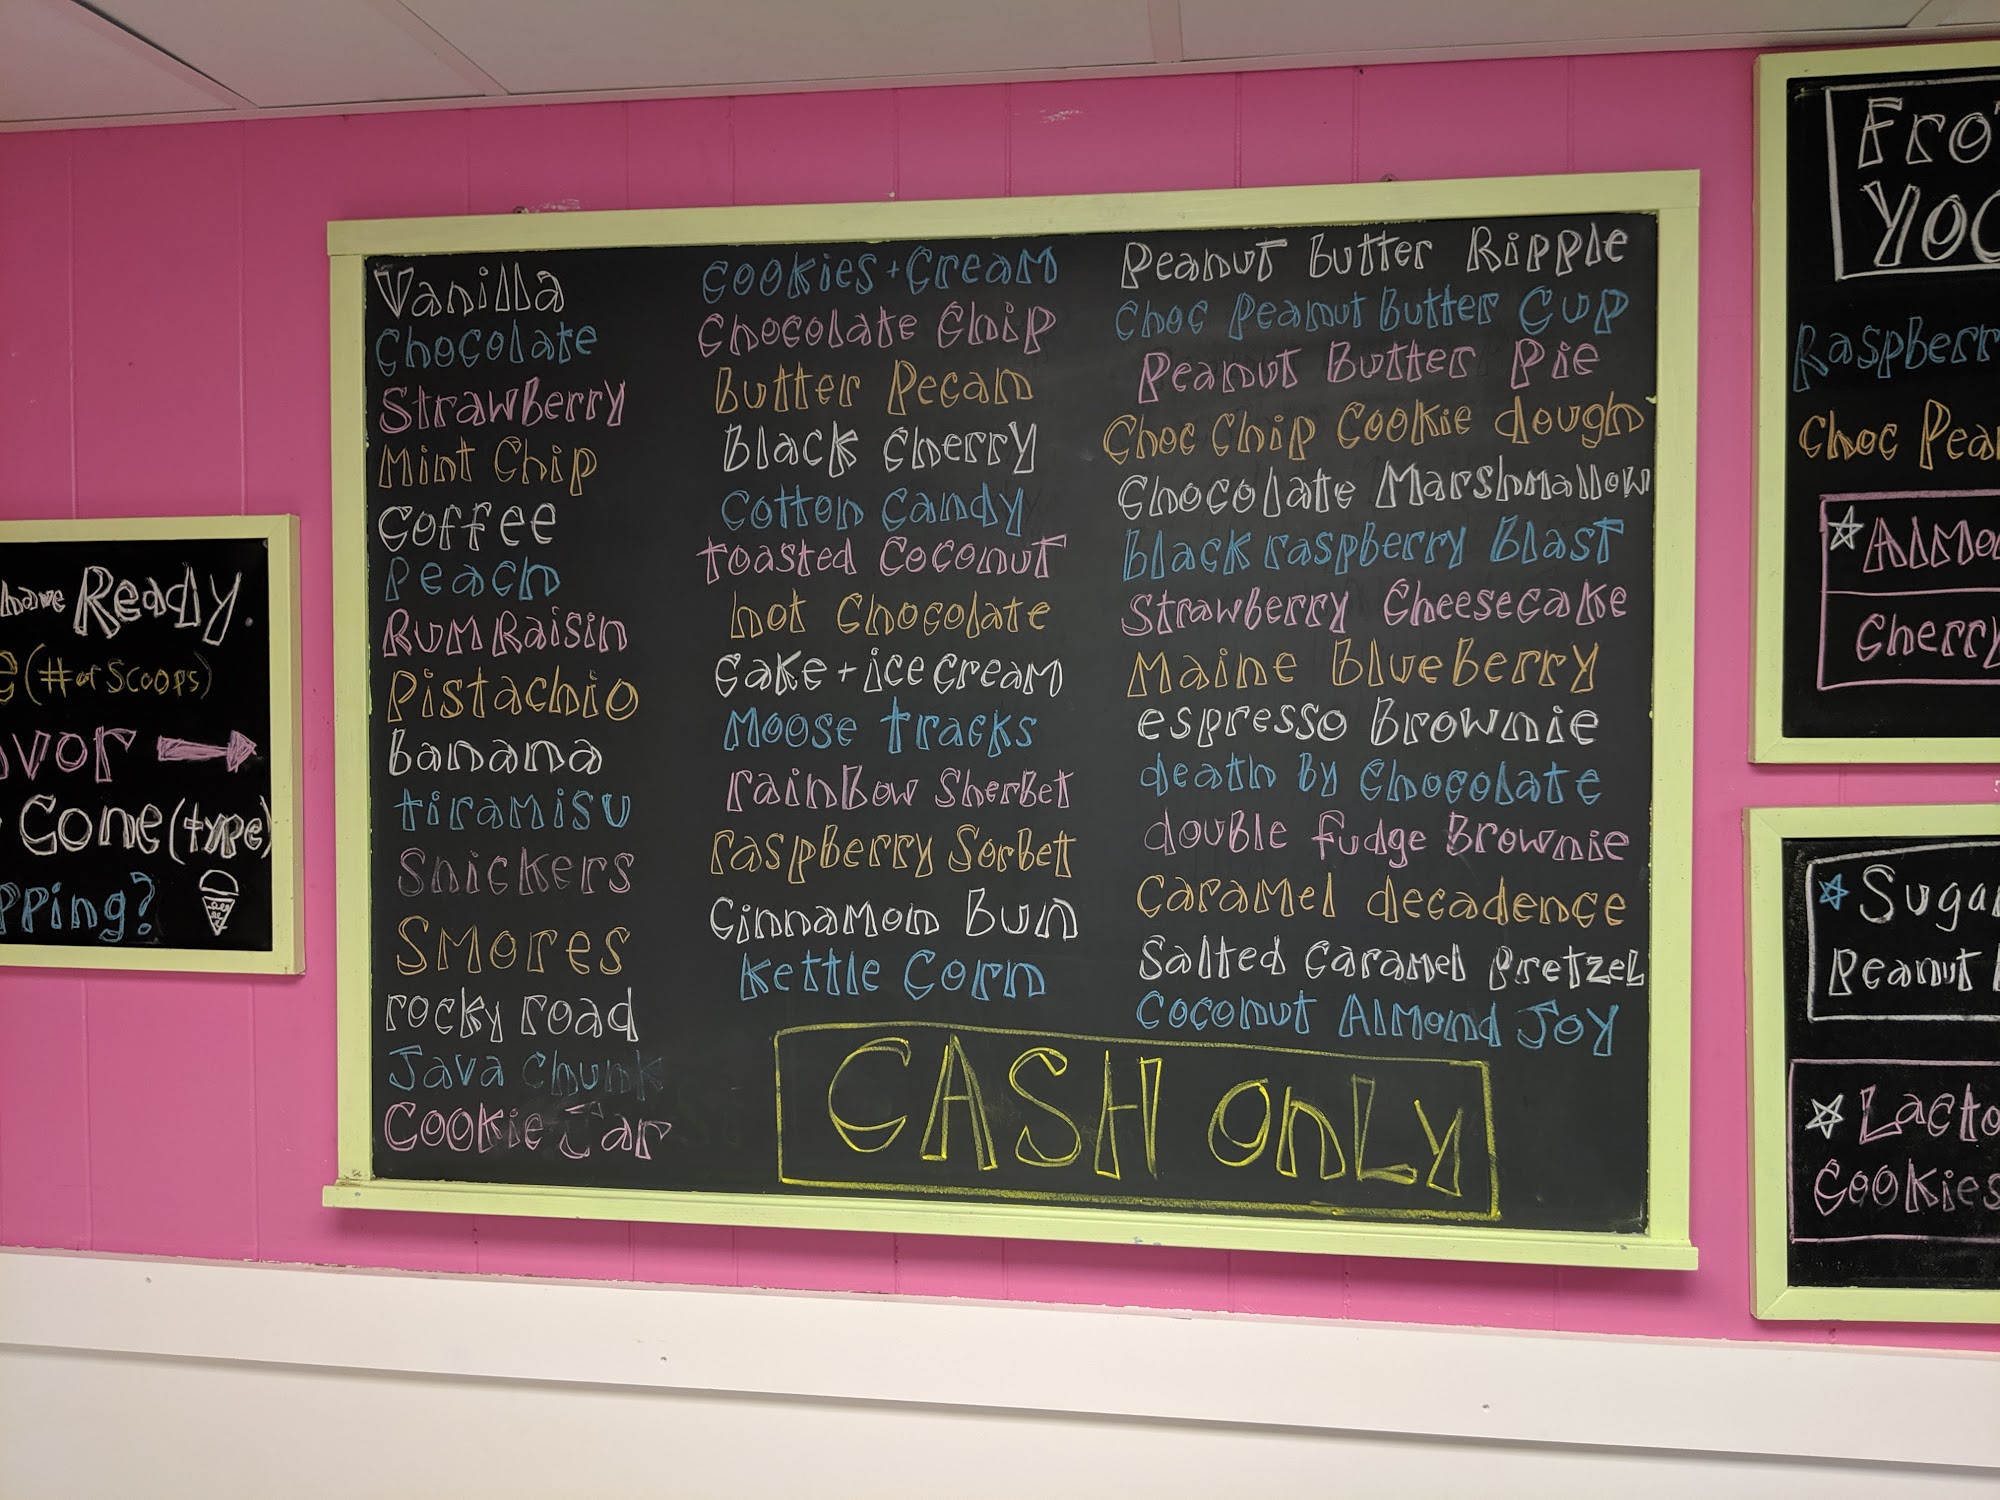 have Ready.
(# of Scoops)
Cone (type)
Vanilla
Chocolate
Strawberry
Mint Chip
Coffee
Peach
Rum Raisin
Pistachio
banana
tiramisu
Snickers
Smores
rocky road
Java Chunk
Cookie Jar
Cookies + Cream
Chocolate Chip
Butter Pecan
Black Cherry
Cotton Candy
toasted Coconut
hot Chocolate
Cake + ice cream
Moose tracks
rainbow Sherbet
raspberry Sorbet
Cinnamon Bun
Kettle Corn
Peanut Butter Ripple
Choc Peanut Butter Cup
Peanut Butter Pie
Choc Chip Cookie dough
Chocolate Marshmallow
black raspberry Blast
Strawberry Cheesecake
Maine Blueberry
espresso Brownie
death by Chocolate
double fudge Brownie
Caramel decadence
Salted Caramel Pretzel
Coconut Almond Joy
CASH only
Choc
Cherry
Peanut
Cookies